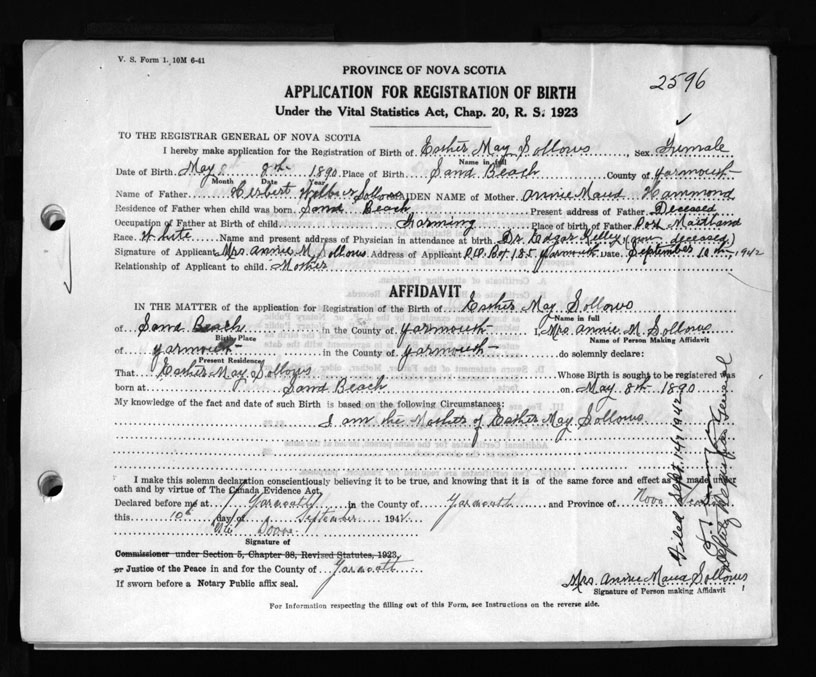 V. S. Form 1. 10M 6-41
PROVINCE OF NOVA SCOTIA
2596
APPLICATION FOR REGISTRATION OF BIRTH
Under the Vital Statistics Act, Chap. 20, R. S. 1923
TO THE REGISTRAR GENERAL OF NOVA SCOTIA
I hereby make application for the Registration of Birth of Esther May Sollows, Sex Female
Name in full
Date of Birth May 8th 1890 Place of Birth Sand Beach County of Yarmouth
Month Date Year
Name of Father Herbert Sollows MAIDEN NAME of Mother Annie Maud Hammond
Residence of Father when child was born Sand Beach Present address of Father Deceased
Occupation of Father at Birth of child Farming Place of birth of Father Port Maitland
Race White Name and present address of Physician in attendance at birth Dr. Edgar Kelley (now deceased)
Signature of Applicant Mrs. Annie M. Sollows Address of Applicant P.O. Box 185 Yarmouth Date September 10th, 1942
Relationship of Applicant to child Mother
AFFIDAVIT
IN THE MATTER of the application for Registration of the Birth of Esther May Sollows
Name in full
of Sand Beach in the County of Yarmouth I, Mrs. Annie M. Sollows
Birth Place Name of Person Making Affidavit
of Yarmouth in the County of Yarmouth do solemnly declare:
Present Residence
That Esther May Sollows Whose Birth is sought to be registered was
born at Sand Beach on May 8th 1890
My knowledge of the fact and date of such Birth is based on the following Circumstances:
I am the Mother of Esther May Sollows
I make this solemn declaration conscientiously believing it to be true, and knowing that it is of the same force and effect as made under
oath and by virtue of The Canada Evidence Act,
Declared before me at Yarmouth in the County of Yarmouth and Province of Nova Scotia
this 10th day of September 1942
Signature of
Commissioner under Section 5, Chapter 38, Revised Statutes, 1923,
or Justice of the Peace in and for the County of Yarmouth
If sworn before a Notary Public affix seal.
Mrs. Annie Maud Sollows
Signature of Person making Affidavit
For Information respecting the filling out of this Form, see Instructions on the reverse side.
Filed Sept. 14, 1942
Deputy Registrar General